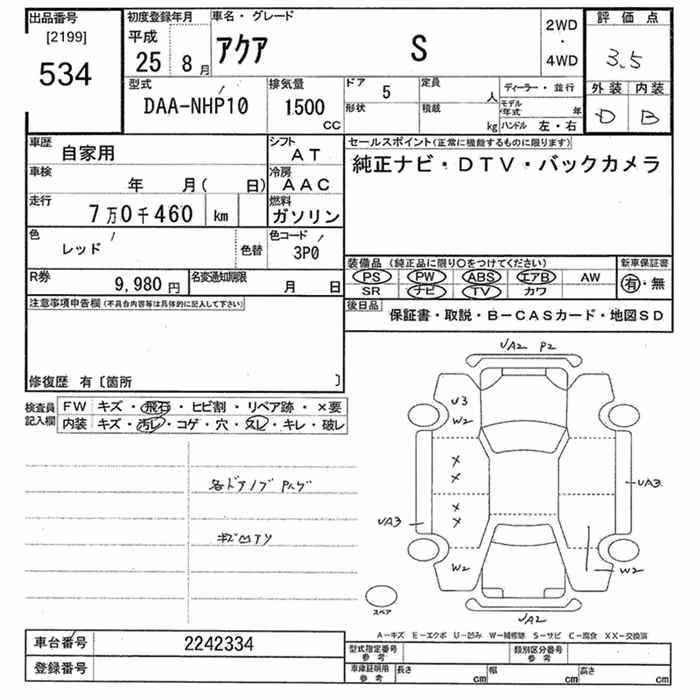 出品番号 初度登録年月 車名・グレード 2WD ・ 4WD 評価点
[2199] 平成 アクア S 3.5
534 25 8月 外装 内装
型式 排気量 ドア 定員 ディーラー・並行 D B
DAA-NHP10 1500 CC 5 人 モデル年式 年
形状 積載 kg ハンドル 左・右
車歴 自家用 シフト AT セールスポイント(正常に機能するものに限ります)
車検 年 月( 日) 冷房 AAC 純正ナビ・DTV・バックカメラ
走行 7万0千460 km 燃料 ガソリン
色 レッド 色替 色コード 3P0
装備品(純正品に限り○をつけてください) 新車保証書
R券 9,980円 名変通知期限 月 日 PS PW ABS エアB AW 有・無
SR ナビ TV カワ
注意事項申告欄(不具合内容等は具体的に記入して下さい) 後日品 保証書・取説・B-CASカード・地図SD
修復歴 有〔箇所 〕
検査員記入欄 FW キズ・飛石・ヒビ割・リペア跡・×要
内装 キズ・汚レ・コゲ・穴・スレ・キレ・破レ
UA2 P2
U3
W2
X
X
各ドアノブ
UA3
X
X
UA3
W2 W2
スペア
UA2
A-キズ E-エクボ U-凹み W-補修跡 S-サビ C-腐食 XX-交換済
車台番号 2242334 型式指定番号 参考 類別区分番号 参考
登録番号 車庫証明用 参考 長さ cm 幅 cm 高さ cm